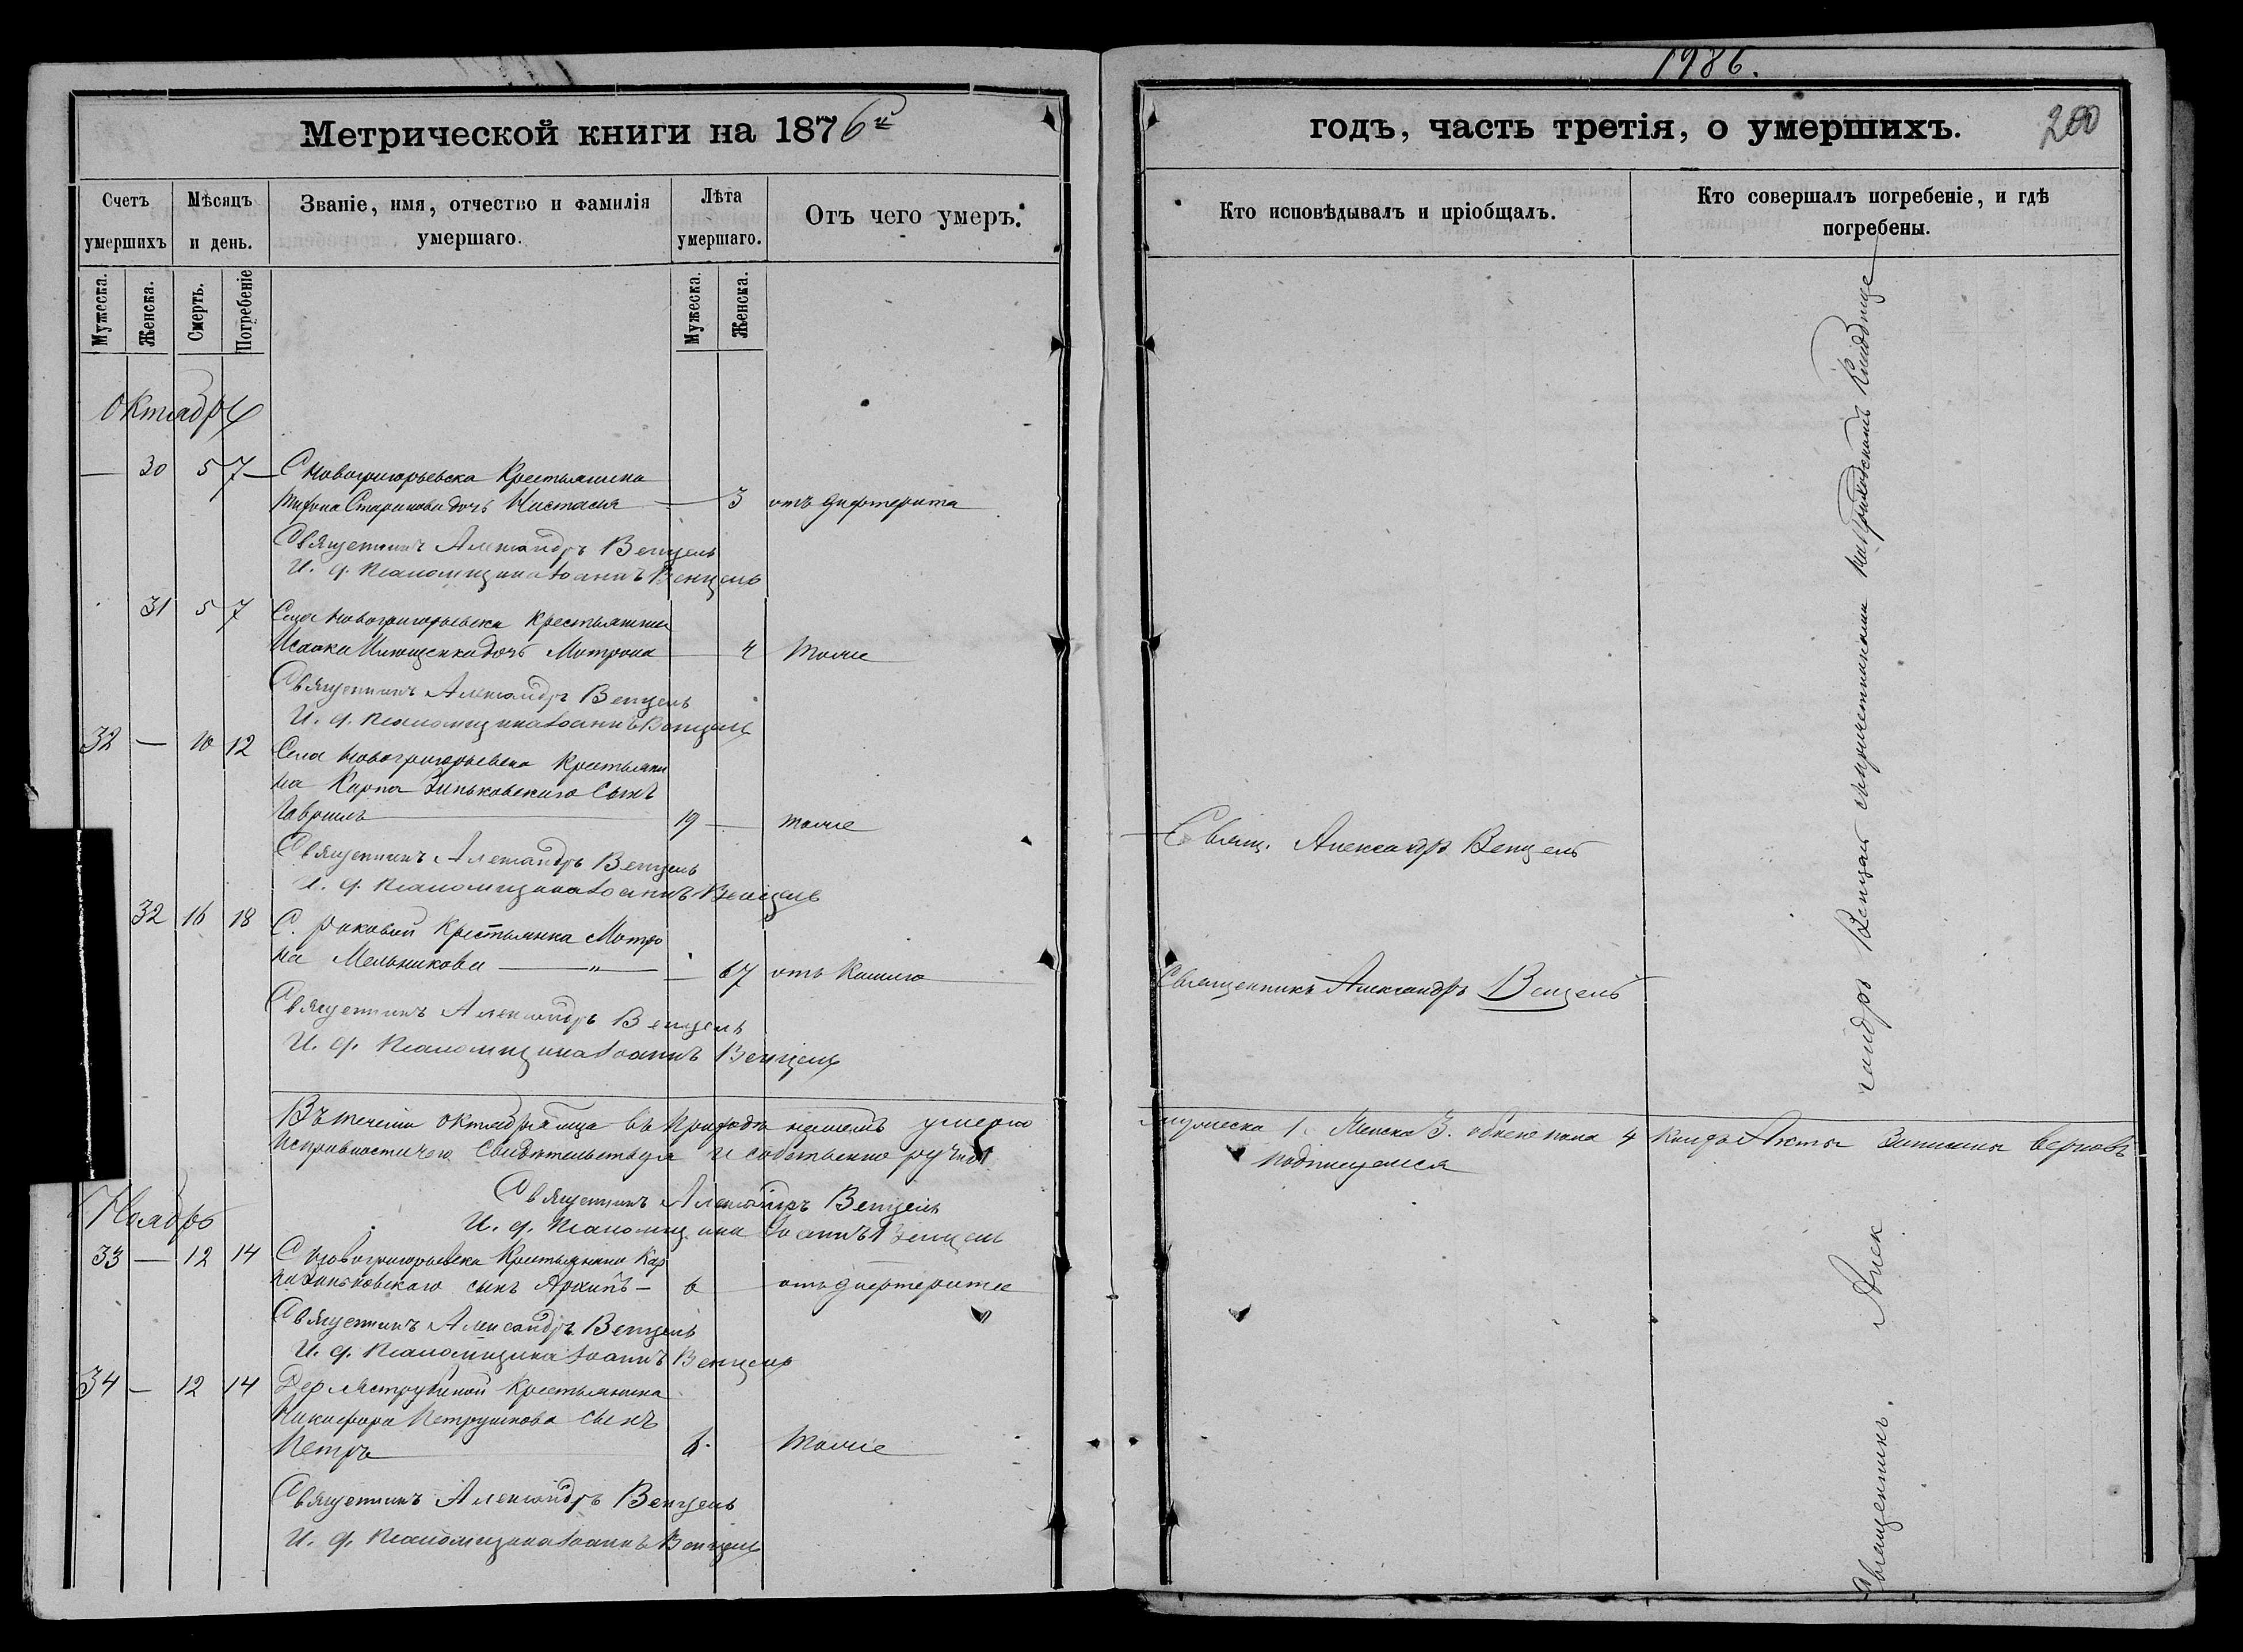 1986.
Метрической книги на 1876й
годъ, часть третія, о умершихъ.
200
Счетъ умершихъ
Мѣсяцъ и день.
Званіе, имя, отчество и фамилія умершаго.
Лѣта умершаго.
Отъ чего умеръ.
Кто исповѣдывалъ и пріобщалъ.
Кто совершалъ погребеніе, и гдѣ погребены.
Мужеска.
Женска.
Смерть.
Погребеніе
Мужеска.
Женска.
Октябрь
— 30 5 7 С Новогригорьевска Крестьянина
дочь Настасія — 3 отъ дифтерита
Священникъ Александръ Венцель
И. д. Псаломщика Іоаннъ Венцель
31 5 7 Села Новогригорьевска Крестьянина
Исаака Илющенка дочь Матрона — 4 тоже
Священникъ Александръ Венцель
И. д. Псаломщика Іоаннъ Венцель
32 — 10 12 Села Новогригорьевска Крестьяни
на Карпа Зиньковскаго Сынъ
Гавриилъ 19 — тоже
Свящ. Александръ Венцель
Священникъ Александръ Венцель
И. д. Псаломщика Іоаннъ Венцель
32 16 18 С. Раковой Крестьянка Матро
на Мельникова — " — 67 отъ Кашлю
Священникъ Александръ Венцель
Священникъ Александръ Венцель
И. д. Псаломщика Іоаннъ Венцель
Въ теченіи октября м-ца въ приходѣ нашемъ умерло мужеска 1. Женска 3. обоего пола 4 Акты Записаны верновъ
Исправности чего Свидѣтельствуя и собственно ручно подписуемся
Священникъ Александръ Венцель
И. д. Псаломщика Іоаннъ Венцель
Ноябрь
33 — 12 14 С Новогригорьевска Крестьянина Кар
па Зиньковскаго сынъ Архипъ — 6 отъ дифтерита
Священникъ Александръ Венцель
И. д. Псаломщика Іоаннъ Венцель
34 — 12 14 Дер Яструбиной Крестьянина
Никифора Петрушкова сынъ
Петръ 6. тоже
Священникъ Александръ Венцель
И. д. Псаломщика Іоаннъ Венцель
Священникъ Александръ Венцель съ причетниками на приходскомъ Кладбище